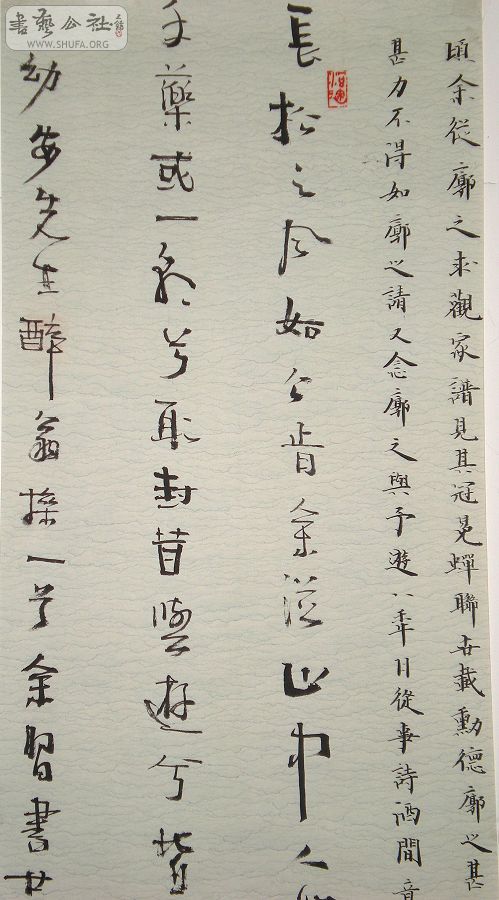 書藝公社
WWW.SHUFA.ORG
頃余從廓之求觀家譜見其冠冕蟬聯世載勳德廓之甚
甚力不得如廓之請又念廓之與予遊八秊日從事詩酒間意
長松之風如公肯余從山中人
手藥或一朝兮取封昔與遊兮皆
幼安先生醉翁操一首余習書廿